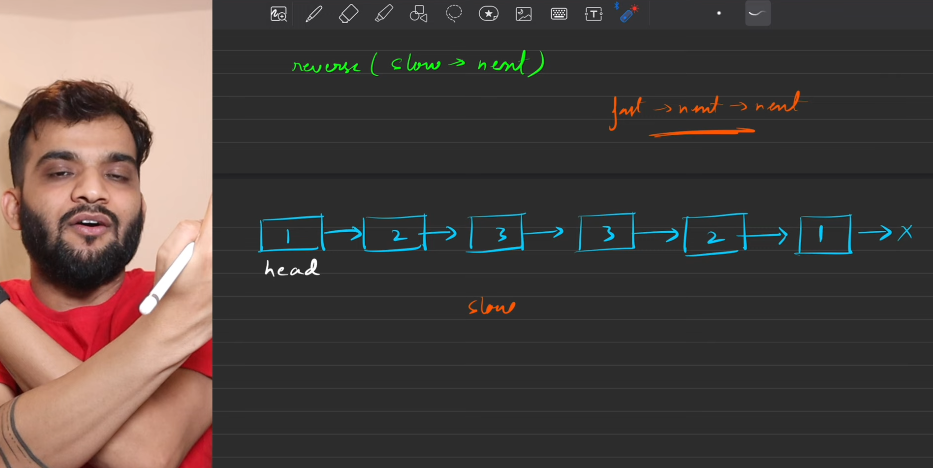 reverse ( slow → next )
fast → next → next
1 → 2 → 3 → 3 → 2 → 1 → x
head
slow